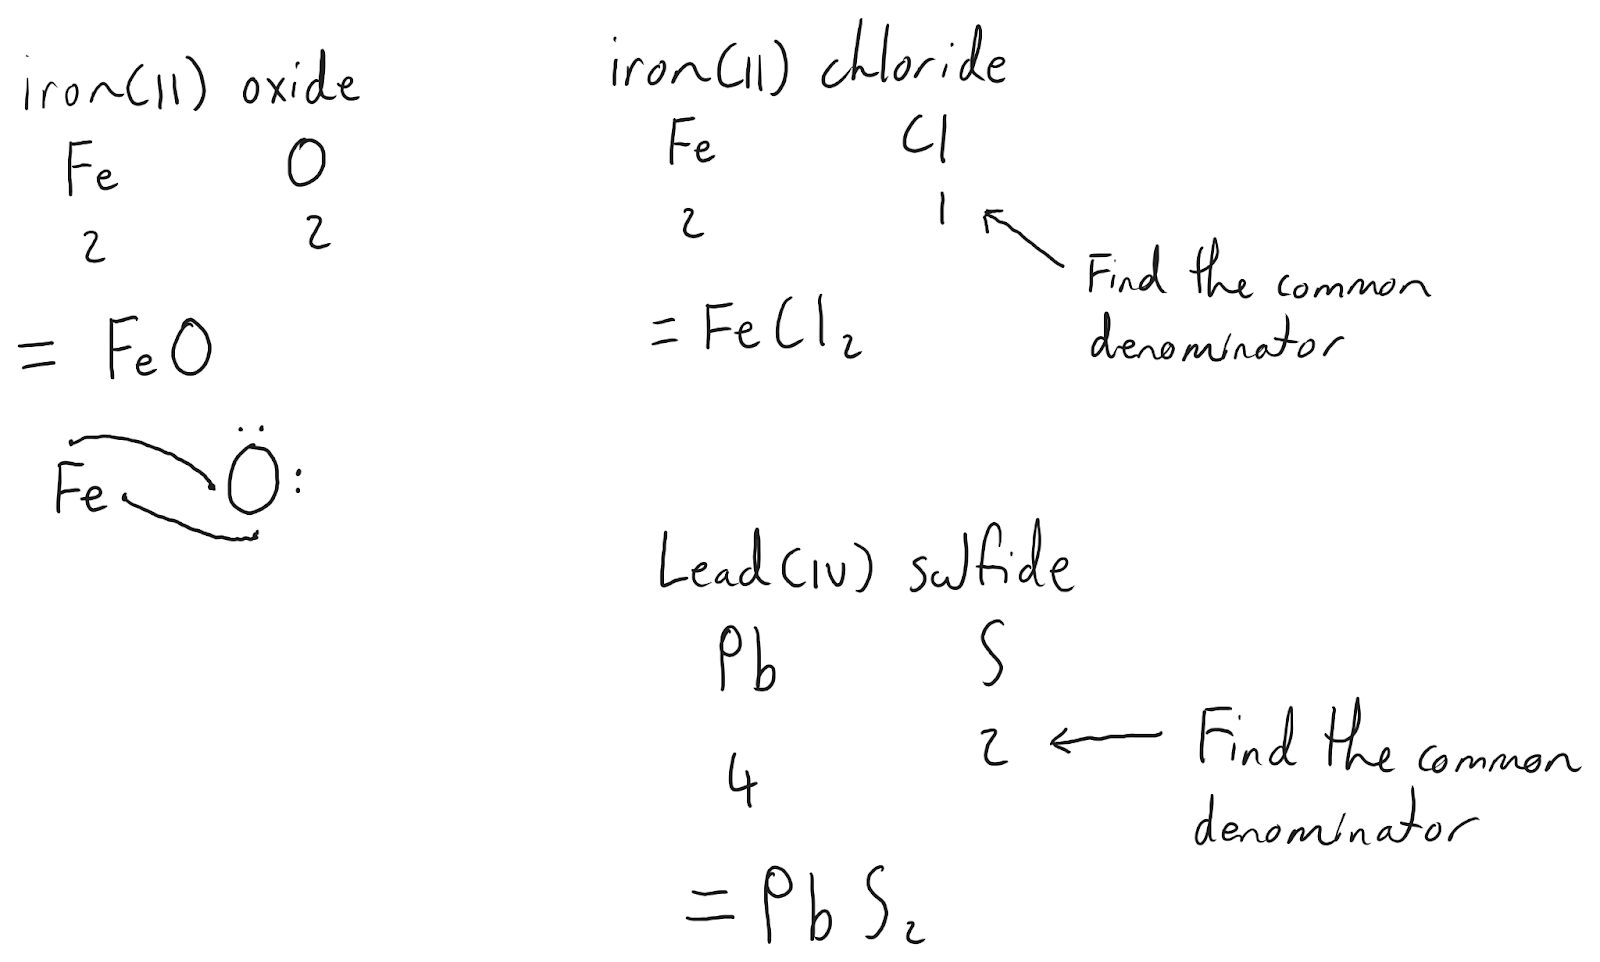 iron(II) oxide
Fe O
2 2
= FeO
Fe Ö:
iron(II) chloride
Fe Cl
2 1
Find the common
denominator
= FeCl₂
Lead(IV) sulfide
Pb S
4 2
Find the common
denominator
= PbS₂